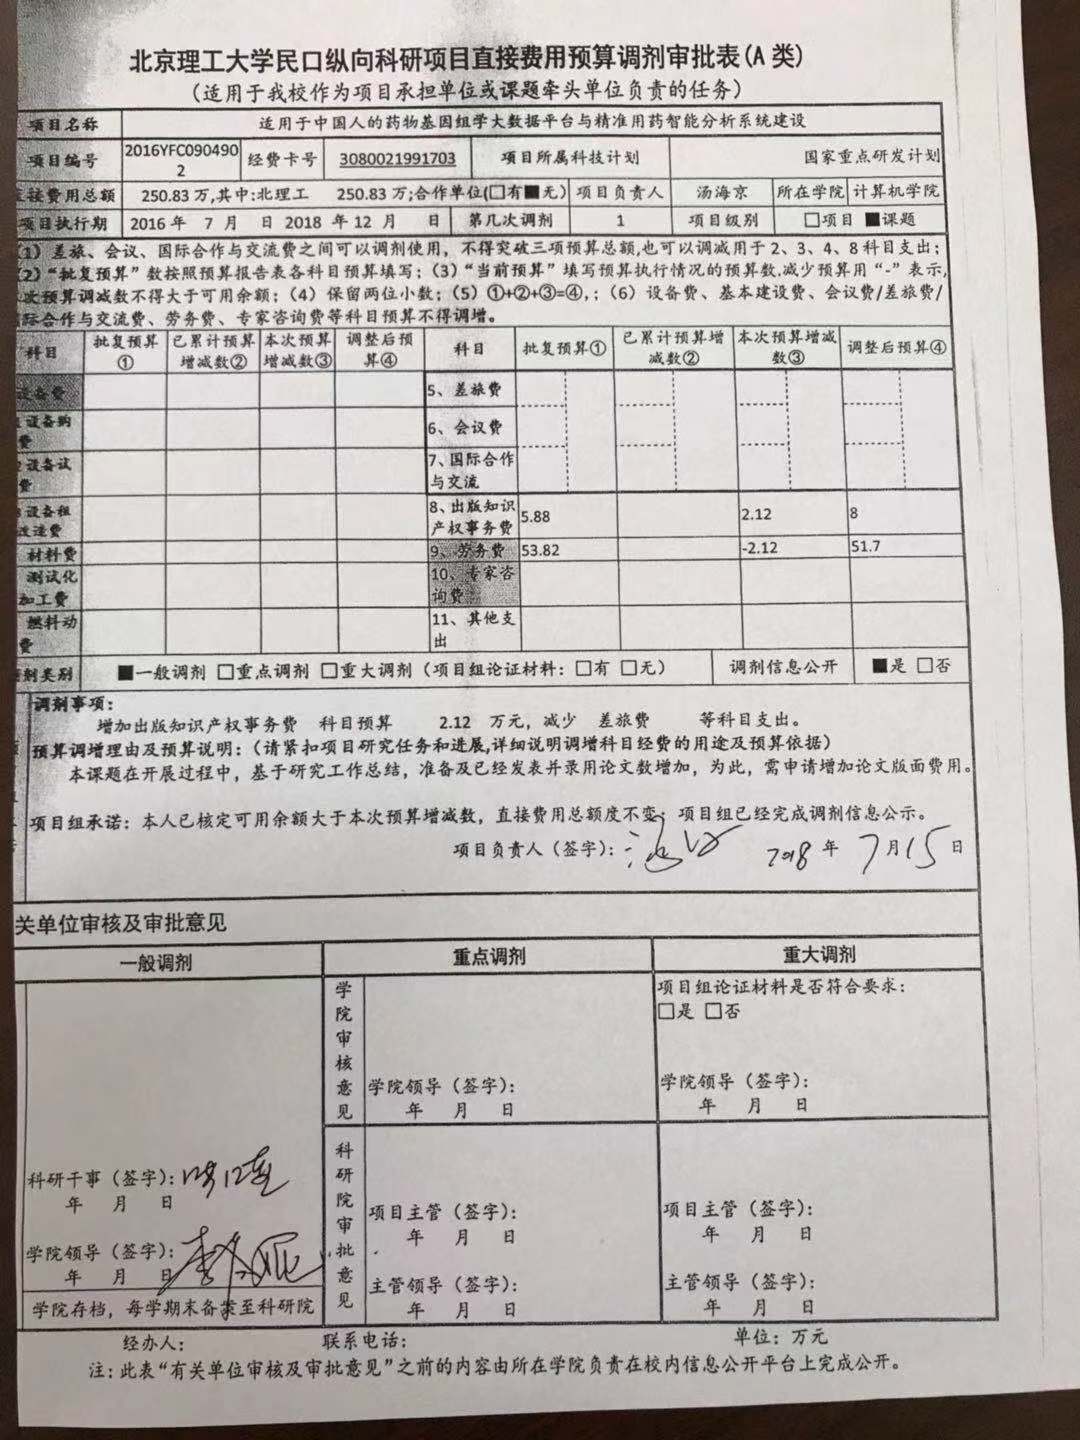 北京理工大学民口纵向科研项目直接费用预算调剂审批表(A 类)
（适用于我校作为项目承担单位或课题牵头单位负责的任务）
项目名称 适用于中国人的药物基因组学大数据平台与精准用药智能分析系统建设
项目编号 2016YFC0904902 经费卡号 3080021991703 项目所属科技计划 国家重点研发计划
接费用总额 250.83 万,其中:北理工 250.83 万;合作单位(□有■无) 项目负责人 汤海京 所在学院 计算机学院
项目执行期 2016 年 7 月 日 2018 年 12 月 日 第几次调剂 1 项目级别 □项目 ■课题
(1) 差旅、会议、国际合作与交流费之间可以调剂使用，不得突破三项预算总额,也可以调减用于 2、3、4、8 科目支出；
(2)“批复预算”数按照预算报告表各科目预算填写；(3)“当前预算”填写预算执行情况的预算数,减少预算用“-”表示,
次预算调减数不得大于可用余额；(4) 保留两位小数；(5) ①+②+③=④,；(6) 设备费、基本建设费、会议费/差旅费/
际合作与交流费、劳务费、专家咨询费等科目预算不得调增。
科目 批复预算① 已累计预算增减数② 本次预算增减数③ 调整后预算④ 科目 批复预算① 已累计预算增减数② 本次预算增减数③ 调整后预算④
设备费 5、差旅费
设备购费 6、会议费
设备试费 7、国际合作与交流
设备租改造费 8、出版知识产权事务费 5.88 2.12 8
材料费 9、劳务费 53.82 -2.12 51.7
测试化加工费 10、专家咨询费
燃料动费 11、其他支出
剂类别 ■一般调剂 □重点调剂 □重大调剂（项目组论证材料：□有 □无） 调剂信息公开 ■是 □否
调剂事项：
增加出版知识产权事务费 科目预算 2.12 万元，减少 差旅费 等科目支出。
预算调增理由及预算说明：(请紧扣项目研究任务和进展,详细说明调增科目经费的用途及预算依据)
本课题在开展过程中，基于研究工作总结，准备及已经发表并录用论文数增加，为此，需申请增加论文版面费用。
项目组承诺：本人已核定可用余额大于本次预算增减数，直接费用总额度不变；项目组已经完成调剂信息公示。
项目负责人（签字）： 2018 年 7 月 15 日
关单位审核及审批意见
一般调剂 重点调剂 重大调剂
学院审核意见
项目组论证材料是否符合要求：
□是 □否
学院领导（签字）：
年 月 日
学院领导（签字）：
年 月 日
科研干事（签字）：
年 月 日
学院领导（签字）：
年 月 日
学院存档，每学期末备案至科研院
科研院审批意见
项目主管（签字）：
年 月 日
主管领导（签字）：
年 月 日
项目主管（签字）：
年 月 日
主管领导（签字）：
年 月 日
经办人： 联系电话： 单位：万元
注：此表“有关单位审核及审批意见”之前的内容由所在学院负责在校内信息公开平台上完成公开。